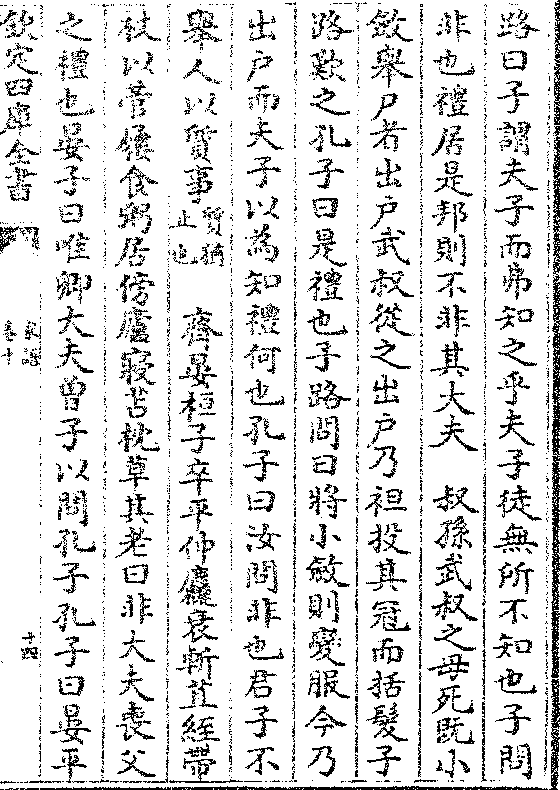 路曰子謂夫子而弗知之乎夫子徒無所不知也子問
非也禮居是邦則不非其大夫　叔孫武叔之母死既小
斂舉尸者出戶武叔從之出戶乃袒投其冠而括髮子
路歎之孔子曰是禮也子路問曰將小斂則變服今乃
出戶而夫子以為知禮何也孔子曰汝問非也君子不
舉人以質事質猶止也　齊晏桓子卒平仲麤衰斬苴絰帶
杖以菅屨食粥居傍廬寢苫枕草其老曰非大夫喪父
之禮也晏子曰唯卿大夫曾子以問孔子孔子曰晏平
欽定四庫全書
家語
卷十
十四